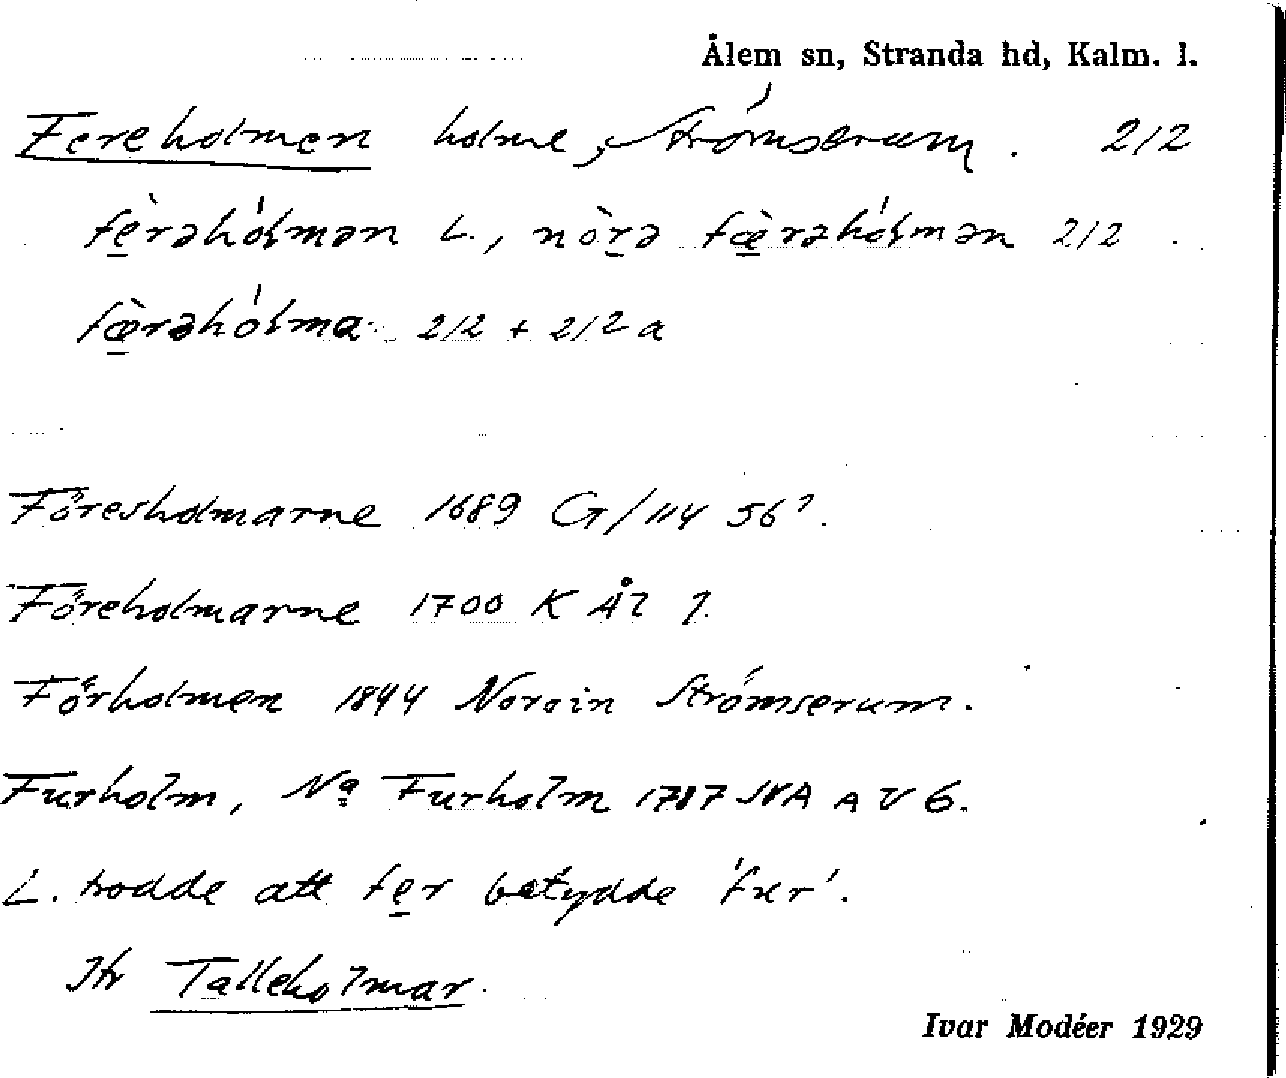 Ålem sn, Stranda hd, Kalm. l.
Fereholmen holme, Strömserum. 212
fèrəhólmən L., nòrə fæ̀rəhólmən 212
fæ̀rəhólma 212 + 212 a
Föresholmarne 1689 G/114 56².
Föreholmarne 1700 K Ål 7.
Förholmen 1844 Nordin Strömserum.
Furholm, Nª Furholm 1787 A V 6.
L. trodde att fer betydde 'fur'.
Jfr Talleholmar.
Ivar Modéer 1929